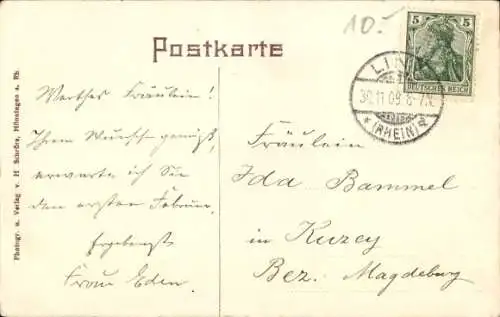 10.-
Postkarte
5
DEUTSCHES REICH
LINZ
30.11.09. 8-9V.
* (RHEIN) a
Werthes Fräulein!
Ihrem Wunsch gemäß,
erwarte ich Sie
den ersten Februar.
Ergebenst
Frau Eden.
Fräulein
Ida Bammel
in Kuzey
Bez. Magdeburg
Photogr. u. Verlag v. H Schröre, Hönningen a. Rh.